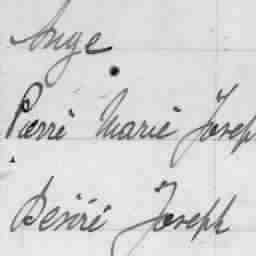 Ange
Pierre Marie Joseph
Désiré Joseph